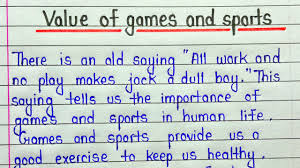 Value of games and sports
There is an old saying "All work and
no play makes jack a dull boy." This
saying tells us the importance of
games and sports in human life.
Games and sports provide us a
good exercise to keep us healthy.